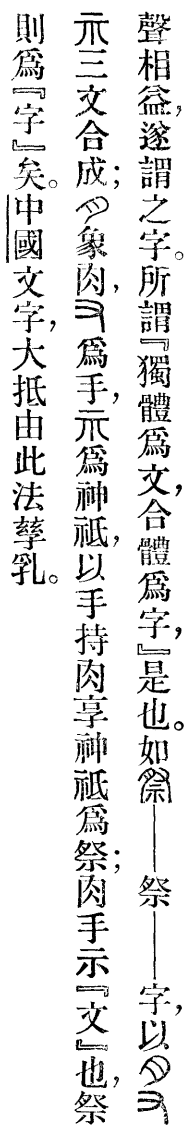 聲相益，遂謂之字。所謂『獨體爲文，合體爲字，』是也。如——祭——字，以
三文合成；象肉，爲手，爲神祇，以手持肉享神祇爲祭；肉手示『文』也，祭
則爲『字』矣。中國文字，大抵由此法孳乳。